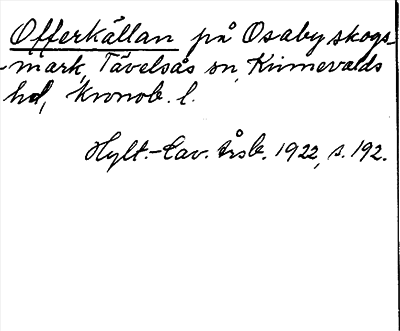 Offerkällan på Osaby skogs-
-mark, Tävelsås sn, Kinnevalds
hd, Kronob. l.
Hylt.-Cav. årsb. 1922, s. 192.